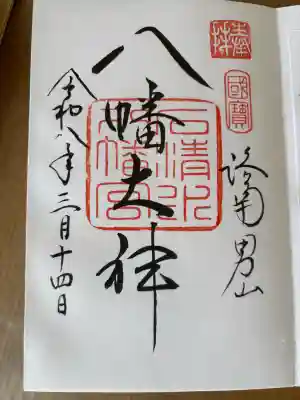 奉拝
國寶
洛南男山
八幡大神
石清水八幡宮
令和八年三月十四日